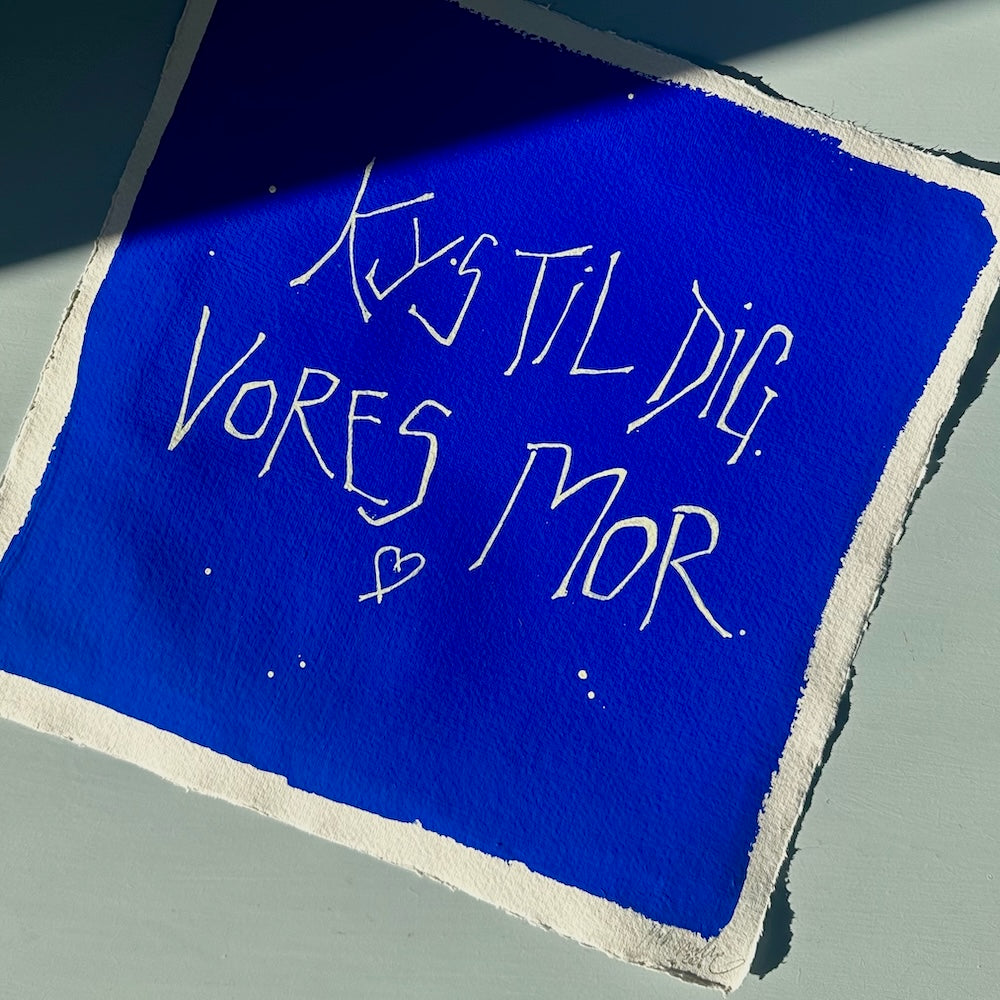 KYS TiL DiG
VORES MOR